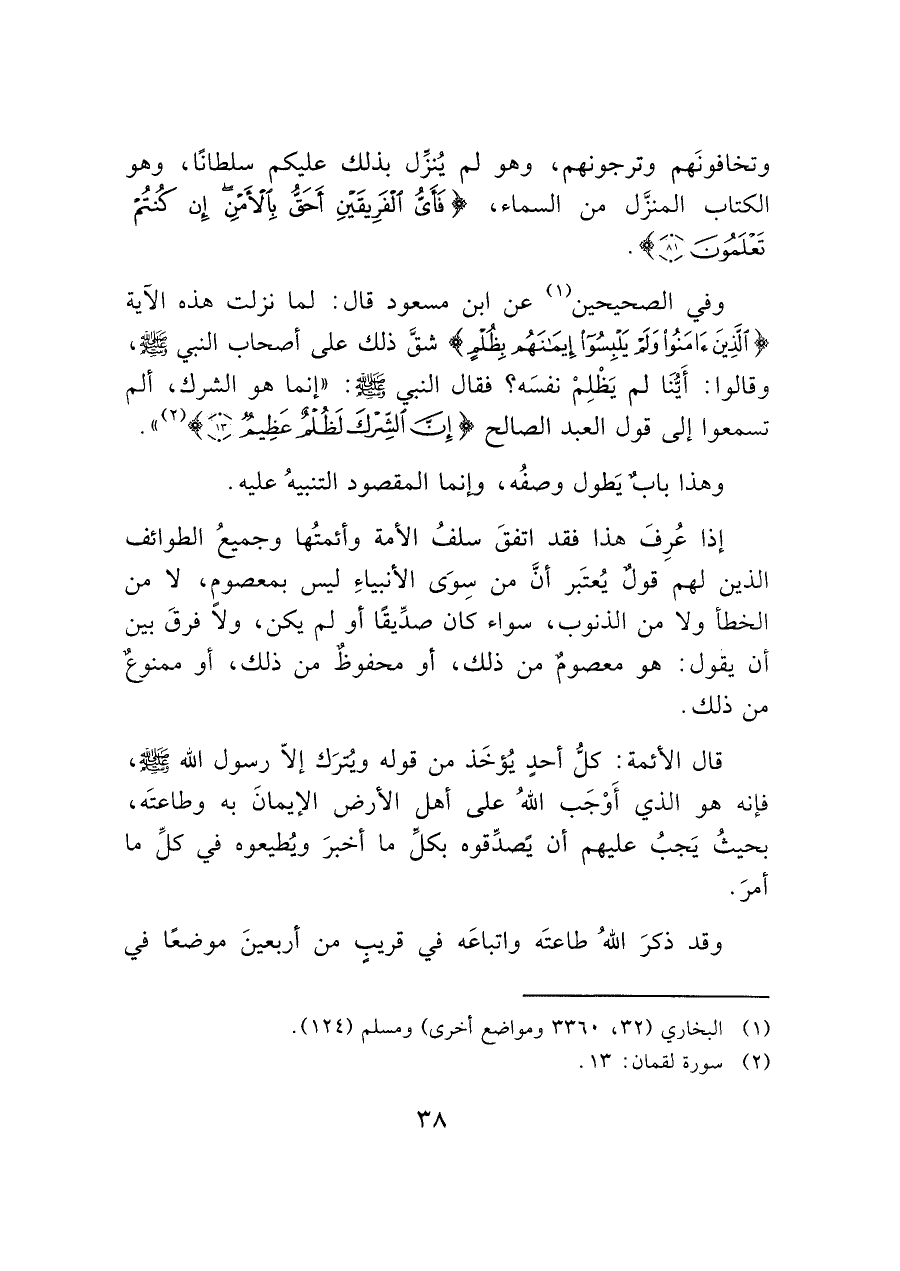 وتخافونَهم وترجونهم، وهو لم يُنزِّل بذلك عليكم سلطانًا، وهو
الكتاب المنزَّل من السماء، ﴿فَأَىُّ ٱلْفَرِيقَيْنِ أَحَقُّ بِٱلْأَمْنِۖ إِن كُنتُمْ
تَعْلَمُونَ ۝٨١﴾.
وفي الصحيحين(١) عن ابن مسعود قال: لما نزلت هذه الآية
﴿ٱلَّذِينَ ءَامَنُوا۟ وَلَمْ يَلْبِسُوٓا۟ إِيمَـٰنَهُم بِظُلْمٍ﴾ شقَّ ذلك على أصحاب النبي ﷺ،
وقالوا: أيُّنَا لم يَظْلِمْ نفسَه؟ فقال النبي ﷺ: «إنما هو الشرك، ألم
تسمعوا إلى قول العبد الصالح ﴿إِنَّ ٱلشِّرْكَ لَظُلْمٌ عَظِيمٌ ۝١٣﴾(٢)».
وهذا بابٌ يَطول وصفُه، وإنما المقصود التنبيهُ عليه.
إذا عُرِفَ هذا فقد اتفقَ سلفُ الأمة وأئمتُها وجميعُ الطوائف
الذين لهم قولٌ يُعتَبر أنَّ من سِوَى الأنبياءِ ليس بمعصومٍ، لا من
الخطأ ولا من الذنوب، سواء كان صدِّيقًا أو لم يكن، ولا فرقَ بين
أن يقول: هو معصومٌ من ذلك، أو محفوظٌ من ذلك، أو ممنوعٌ
من ذلك.
قال الأئمة: كلُّ أحدٍ يُؤخَذ من قوله ويُترَك إلاّ رسول الله ﷺ،
فإنه هو الذي أَوْجَب اللهُ على أهل الأرض الإيمانَ به وطاعتَه،
بحيثُ يَجبُ عليهم أن يُصدِّقوه بكلِّ ما أخبرَ ويُطيعوه في كلِّ ما
أمرَ.
وقد ذكرَ اللهُ طاعتَه واتباعَه في قريبٍ من أربعينَ موضعًا في
(١) البخاري (٣٢، ٣٣٦٠ ومواضع أخرى) ومسلم (١٢٤).
(٢) سورة لقمان: ١٣.
٣٨